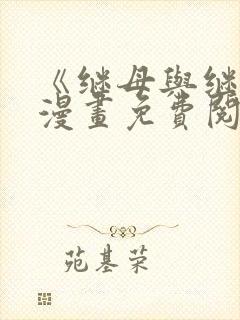 《继母與继
漫畫免費閱
苑基荣